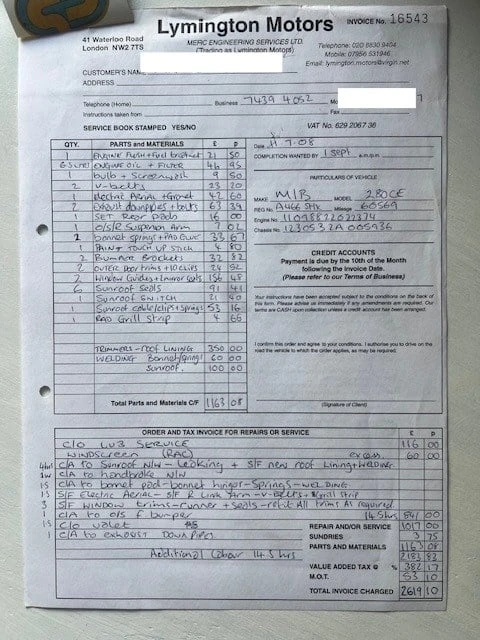 41 Waterloo Road
London NW2 7TS
Lymington Motors
MERC ENGINEERING SERVICES LTD.
(Trading as Lymington Motors)
INVOICE No. 16543
Telephone: 020 8830 9404
Mobile: 07956 531946
Email: lymington.motors@virgin.net
CUSTOMER'S NAME
ADDRESS
Telephone (Home) Business 7439 4052 Mo
Instructions taken from Fax
SERVICE BOOK STAMPED YES/NO
VAT No. 629 2067 36
QTY. PARTS and MATERIALS £ p
1 ENGINE flush + fuel treatment 21 50
ENGINE OIL + FILTER 44 95
1 bulb + Screenwash 9 50
2 V-belts 23 20
1 electric AERIAL + Gromet 42 60
2 Exhaust downpipes + bolts 63 39
1 SET Rear pads 16 00
1 O/S/R Suspension Arm 7 02
2 bonnet springs + PAD Cover 33 67
1 PAINT TOUCH UP STICK 4 80
2 Bumper Brockets 32 82
2 OUTER Door trims + 10 clips 24 52
2 Window Guides + 1 mirror 156 48
Sunroof Seals 91 41
1 Sunroof SWITCH 21 40
1 Sunroof cable/clips + springs 53 16
1 RAD Grill Strip 4 66
TRIMMERS - roof LINING 350 00
WELDING Bonnet/spring 60 00
Sunroof. 100 00
Total Parts and Materials C/F 1163 08
Date 11 7-08
COMPLETION WANTED BY 1 Sept a.m./p.m.
PARTICULARS OF VEHICLE
MAKE M/B MODEL 280CE
REG No. A466 SHX Mileage 60569
Engine No. 11098822022374
Chassis No. 1230532A005936
CREDIT ACCOUNTS
Payment is due by the 10th of the Month
following the Invoice Date.
(Please refer to our Terms of Business)
Your instructions have been accepted subject to the conditions on the back of
this form. Please advise us immediately if any amendments are required. Our
terms are CASH upon collection unless a credit account has been arranged.
I confirm this order and agree to your conditions. I authorise you to drive on the
road the vehicle to which the order applies, as may be required.
(Signature of Client)
ORDER AND TAX INVOICE FOR REPAIRS OR SERVICE £ p
C/O LUB SERVICE 116 00
WINDSCREEN (RAC) excess. 60 00
4hrs C/A to Sunroof N/W - Leaking + S/F new roof Lining + WELDING.
C/A to handbrake N/W
1.5 C/A to bonnet pad - bonnet hinges - Springs - WELDING
1.5 S/F Electric Aerial - S/F R Link Arm - V-belts + Grill strip
3 S/F WINDOW trims - runner + seals - refit All trims As required
1 C/A to O/S f bumper 14.5 hrs 841 00
1.5 C/O valet
1 C/A to exhaust DOWN PIPES
Additional Labour 14.5 hrs
REPAIR AND/OR SERVICE 1017 00
SUNDRIES 3 75
PARTS AND MATERIALS 1163 08
2183 83
VALUE ADDED TAX @ % 382 17
M.O.T. 53 10
TOTAL INVOICE CHARGED 2619 10